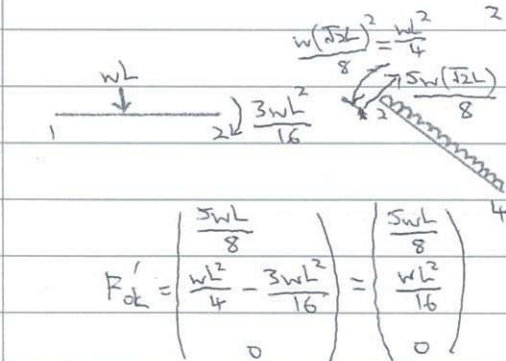 2
w(√2L)²/8 = wL²/4
wL
5w(√2L)/8
1 2 3wL²/16 2
4
F'ok = (5wL/8, wL²/4 - 3wL²/16, 0) = (5wL/8, wL²/16, 0)